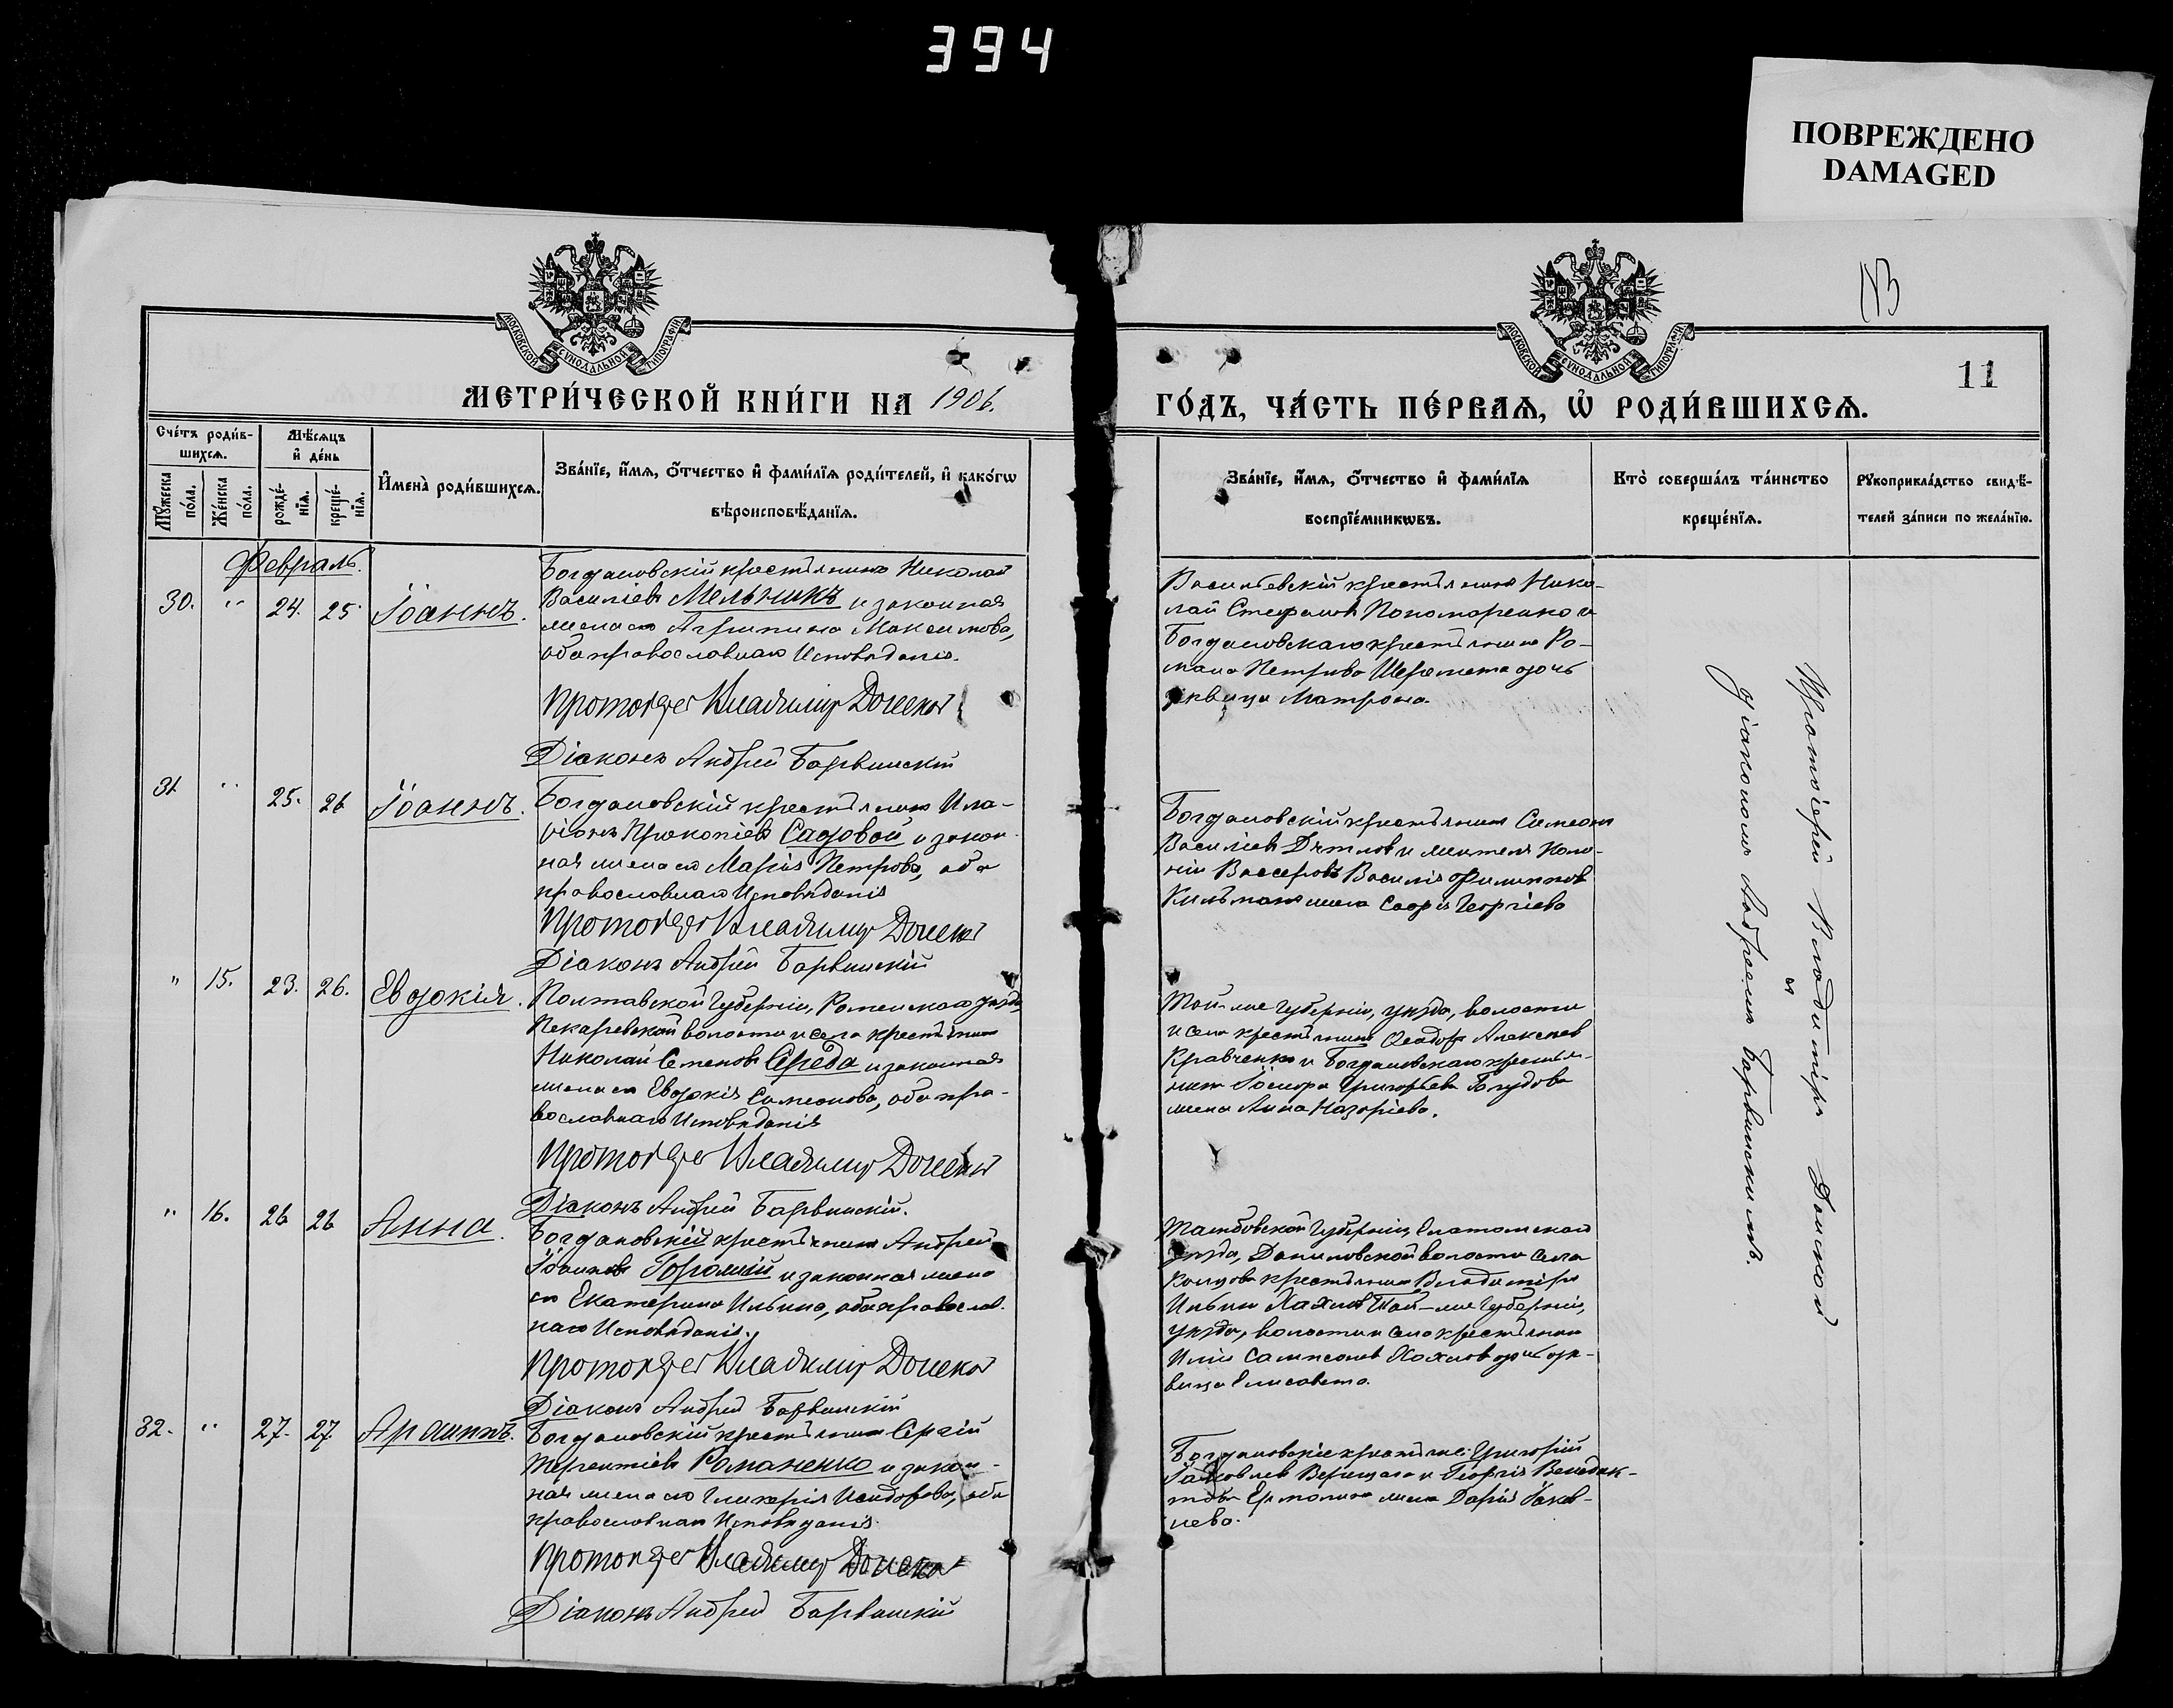 394
ПОВРЕЖДЕНО
DAMAGED
МОСКОВСКОЙ СѴНОДАЛЬНОЙ ТИПОГРАФІИ
МОСКОВСКОЙ СѴНОДАЛЬНОЙ ТИПОГРАФІИ
11
МЕТРИ́ЧЕСКОЙ КНИ́ГИ НА 1906.
ГО́ДЪ, ЧА́СТЬ ПЕ́РВАЯ, Ѡ҆ РОДИ́ВШИХСЯ.
Сче́тъ роди́в-
шихся.
Мꙋ́жеска по́ла.
Же́нска по́ла.
Мѣ́сяцъ
и҆ де́нь
рожде́-
нїя.
креще́-
нїя.
И҆мена̀ роди́вшихся.
Зва́нїе, и҆́мя, ѻ҆́тчество и҆ фами́лїя роди́телей, и҆ како́гѡ
вѣроисповѣ́данїя.
Зва́нїе, и҆́мя, ѻ҆́тчество и҆ фами́лїя
воспрїе́мникѡвъ.
Кто̀ соверша́лъ та́инство
креще́нїя.
Рꙋкоприкла́дство свидѣ́-
телей за́писи по жела́нїю.
Февраль.
30. " 24. 25 Іоаннъ.
Богдановскій крестьянинъ Николай
Василіевъ Мельникъ и законная
жена его Агрипина Максимова,
оба православнаго Исповѣданія.
Протоіерей Владимір Донской
Діаконъ Андрей Барвинскій
Васильевскій крестьянинъ Нико-
лай Стефановъ Пономаренко и
Богдановскаго крестьянина Ро-
мана Петрова Шеремета дочь
дѣвица Матрона.
31 " 25. 26 Іоаннъ.
Богдановскій крестьянинъ Ила-
ріонъ Прокопіевъ Садовой и закон-
ная жена его Марія Петрова, оба
православнаго Исповѣданія
Протоіерей Владимір Донской
Діаконъ Андрей Барвинскій
Богдановскій крестьянинъ Симеонъ
Василіевъ Дѣтлов и жителя Коло-
ніи Вассеровъ Василія Филиппов
жена Георгіева
" 15. 23. 26. Евдокія.
Полтавской Губерніи, Роменскаго уѣзда,
Пекаревской волости и села крестьянинъ
Николай Семеновъ Середа и законная
жена его Евдокія Симеонова, оба пра-
вославнаго Исповѣданія
Протоіерей Владимір Донской
Діаконъ Андрей Барвинскій.
Той-же Губерніи, уѣзда, волости
и села крестьянинъ Ѳеодоръ Алексѣев
Кравченко и Богдановскаго крестья-
нина Григорьева
жена Анна Назаріева.
" 16. 26 26 Анна.
Богдановскій крестьянинъ Андрей
Іоанновъ и законная жена
его Екатерина Ильина, оба православ-
наго Исповѣданія.
Протоіерей Владимір Донской
Діаконъ Андрей Барвинскій
Тамбовской Губерніи, Елатомскаго
уѣзда, Даниловской волости села
крестьянинъ Владиміръ
Ильин Хахлов Той-же Губерніи,
уѣзда, волости и села крестьянина
Иліи Сампсонов Хохлов дочь дѣ-
вица Елисавета.
32. " 27. 27.
Богдановскій крестьянинъ Сергій
Терентіевъ Романенко и закон-
ная жена его Гликерія Исидорова, оба
православнаго Исповѣданія
Протоіерей Владимір Донской
Діаконъ Андрей Барвинскій
Богдановскіе крестьяне: Григорій
Іаковлев и Георгія Венедик-
това Ермолина жена Дарія Іаков-
лева.
Протоіерей Владиміръ Донской
и
діаконом Андреемъ Барвинскимъ.